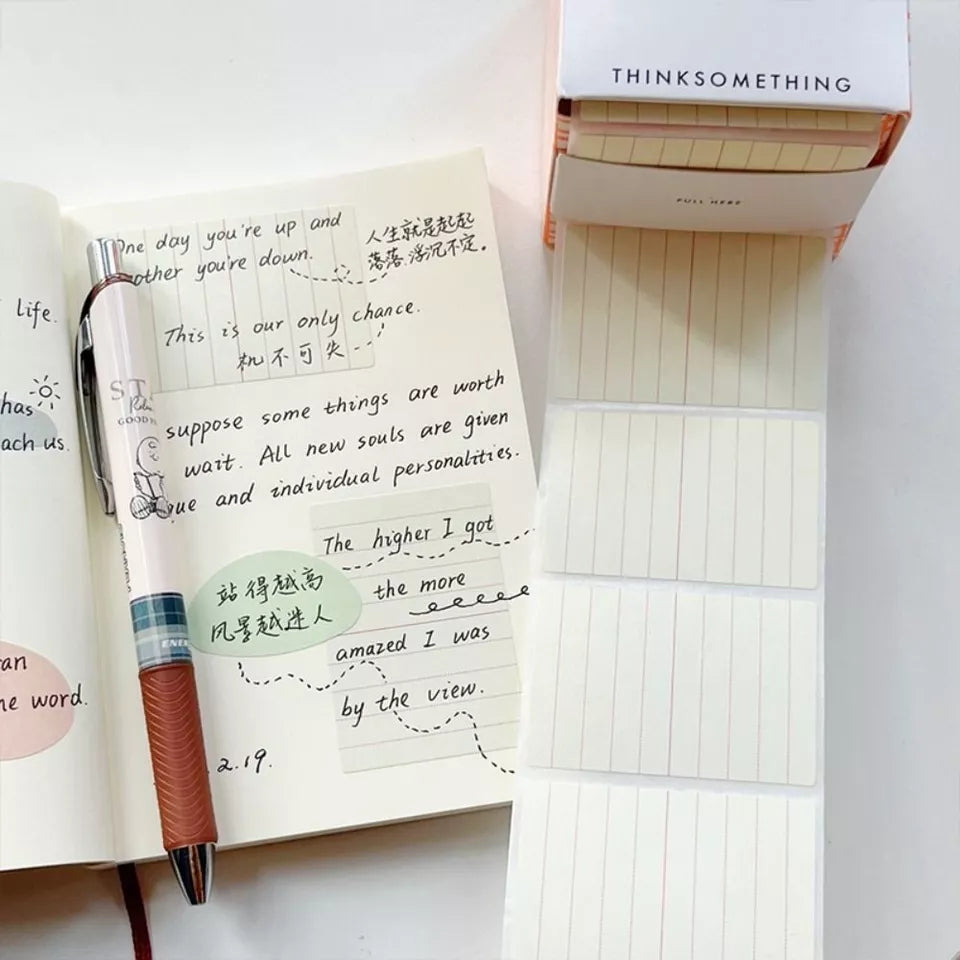 THINKSOMETHING
PULL HERE
life.
has
ach us.
an
ne word.
One day you're up and
other you're down.
人生就是起起
落落,浮沉不定。
This is our only chance.
机不可失
suppose some things are worth
wait. All new souls are given
que and individual personalities.
The higher I got
the more
amazed I was
by the view.
站得越高
风景越迷人
2.19.
ST
GOOD
ENER